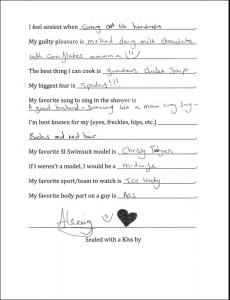 I feel sexiest when
My guilty pleasure is melted dairy milk chocolate
with Corn flakes mmmmm
The best thing I can cook is grandmas chicken soup
My biggest fear is spiders!!!
My favorite song to sing in the shower is
A good husband - Sensing like a man
I'm best known for my (eyes, freckles, hips, etc.)
Boobs and red hair
My favorite SI Swimsuit model is Christy Teigen
If I weren't a model, I would be a midwife
My favorite sport/team to watch is Ice Hockey
My favorite body part on a guy is Ass
Sealed with a Kiss by